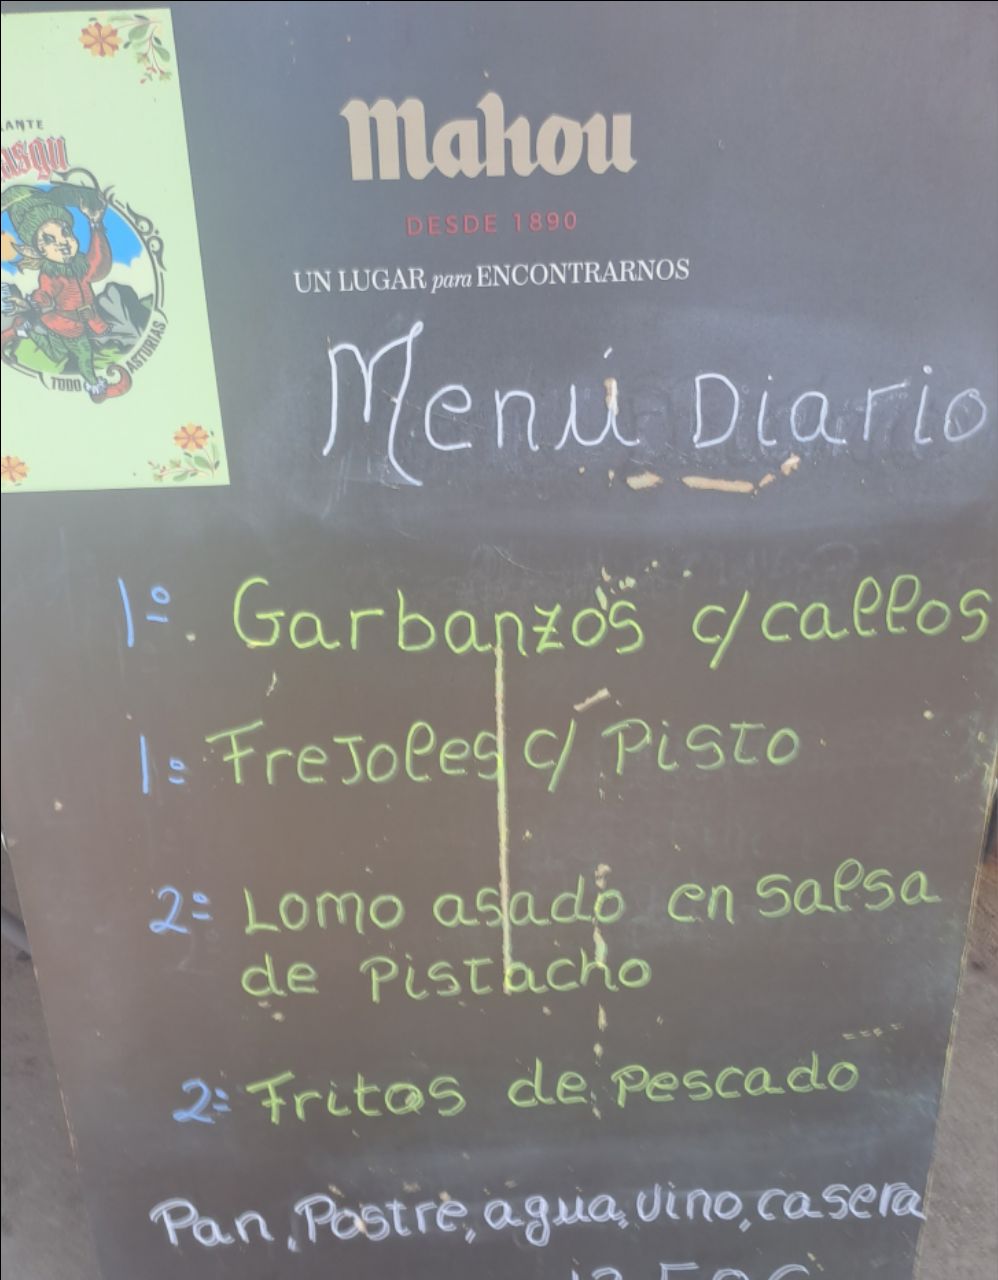 Mahou
DESDE 1890
UN LUGAR para ENCONTRARNOS
TODO
ASTURIAS
Menú Diario
1º. Garbanzos c/callos
1º Frejoles c/ Pisto
2º Lomo asado en salsa
de Pistacho
2º Fritos de Pescado
Pan, Postre, agua, vino, casera